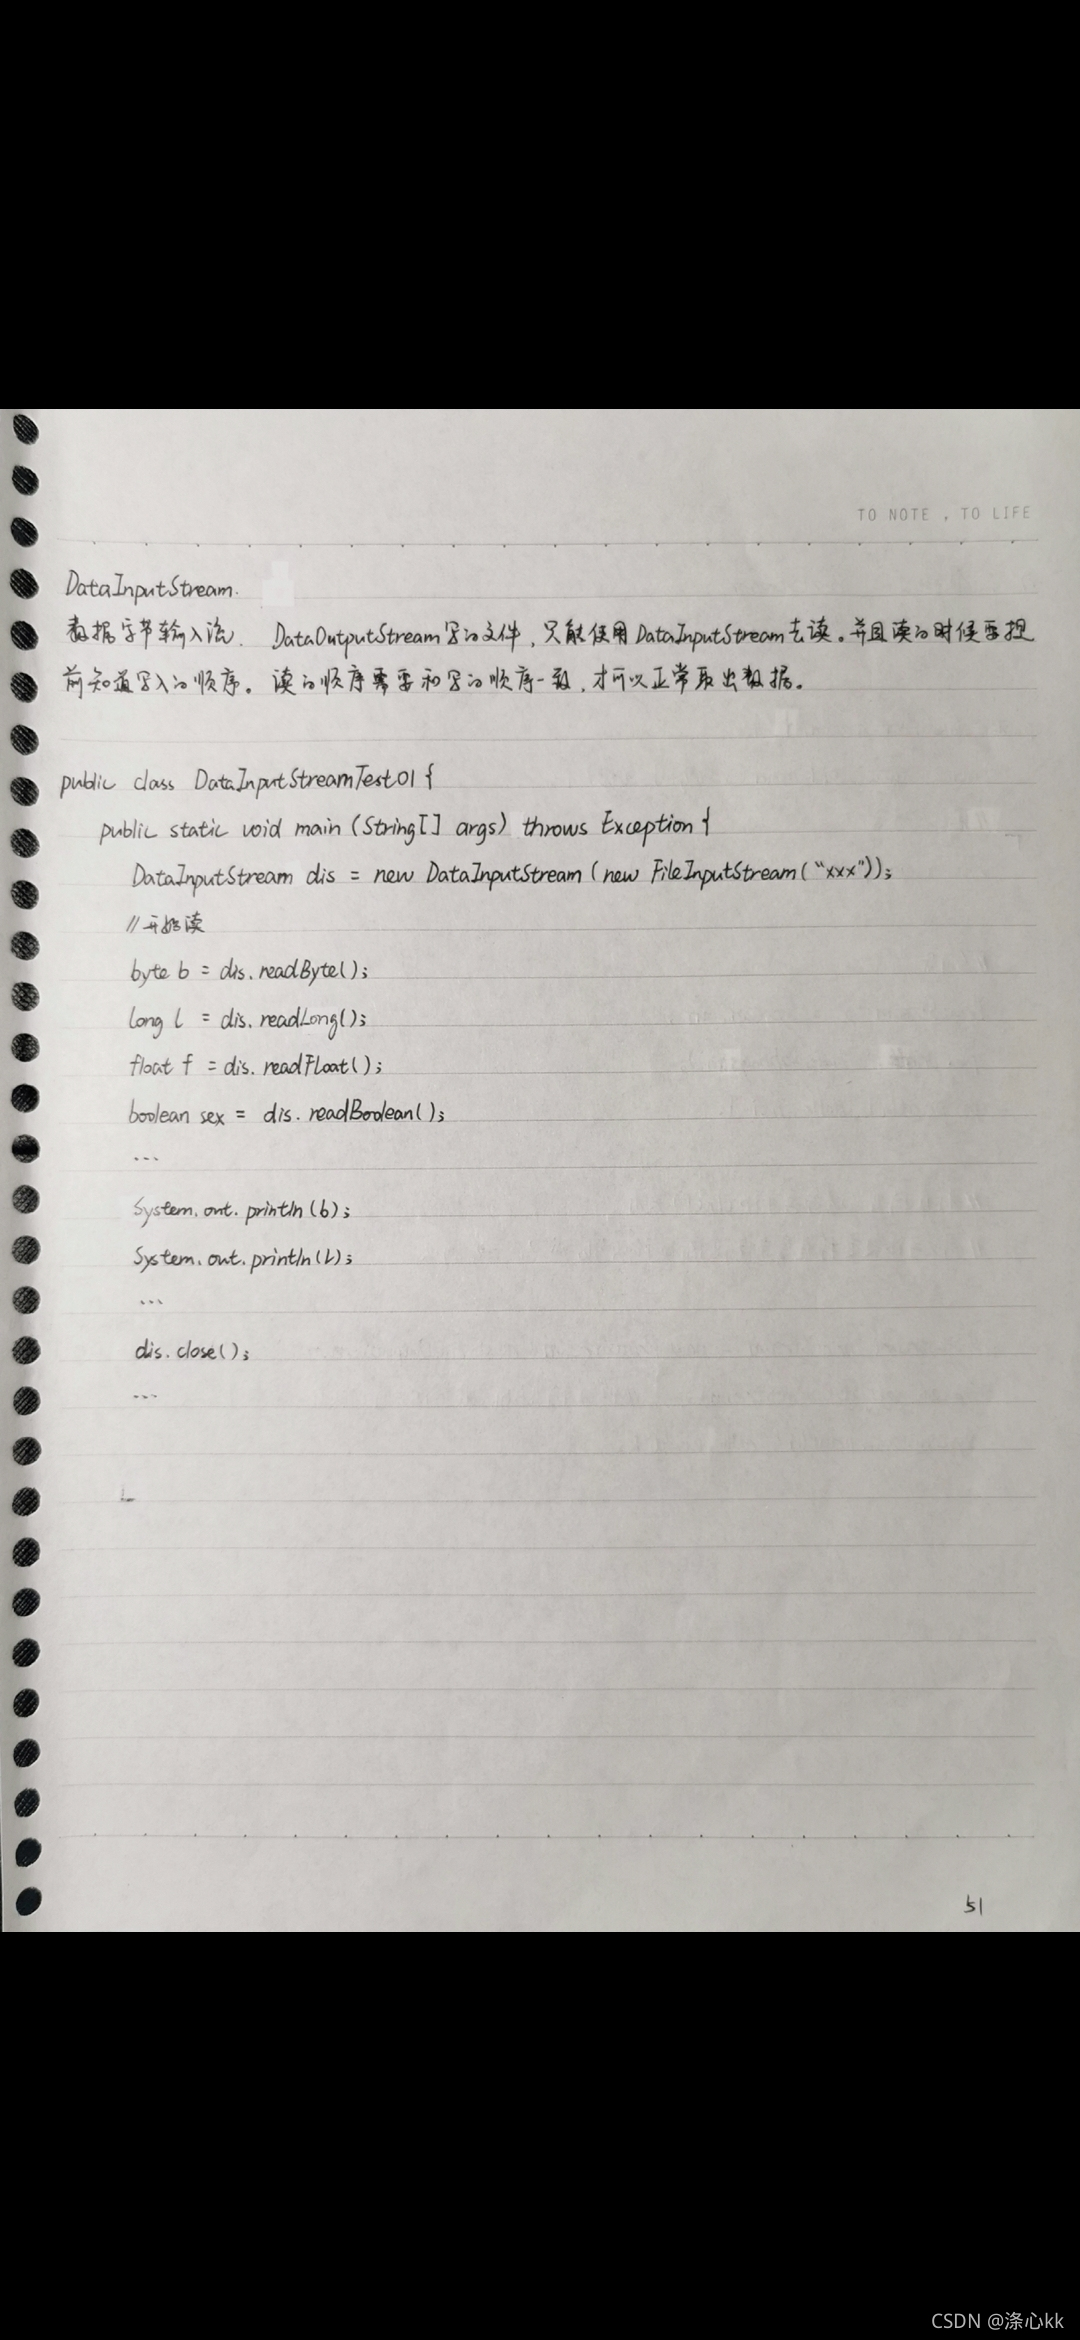 TO NOTE , TO LIFE
DataInputStream.
数据字节输入流. DataOutputStream写的文件,只能使用DataInputStream去读。并且读的时候要提
前知道写入的顺序。读的顺序需要和写的顺序一致,才可以正常取出数据。
public class DataInputStreamTest01 {
public static void main (String[] args) throws Exception {
DataInputStream dis = new DataInputStream (new FileInputStream ("xxx"));
//开始读
byte b = dis.readByte();
long l = dis.readLong();
float f = dis.readFloat();
boolean sex = dis.readBoolean();
...
System.out.println(b);
System.out.println(l);
...
dis.close();
...
51
CSDN @涤心kk